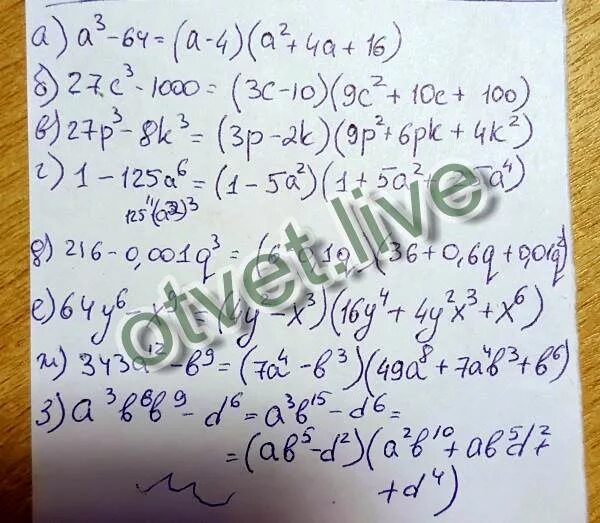 а) a³-64=(a-4)(a²+4a+16)
б) 27c³-1000=(3c-10)(9c²+10c+100)
в) 27p³-8k³=(3p-2k)(9p²+6pk+4k²)
г) 1-125a⁶=(1-5a²)(1+5a²+25a⁴)
125(a²)³
д) 216-0,001q³=(6-0,1q)(36+0,6q+0,01q²)
е) 64y⁶-x⁹=(4y²-x³)(16y⁴+4y²x³+x⁶)
ж) 343a¹²-b⁹=(7a⁴-b³)(49a⁸+7a⁴b³+b⁶)
з) a³b⁶b⁹-d⁶=a³b¹⁵-d⁶=
=(ab⁵-d²)(a²b¹⁰+ab⁵d²+
+d⁴)
otvet.live